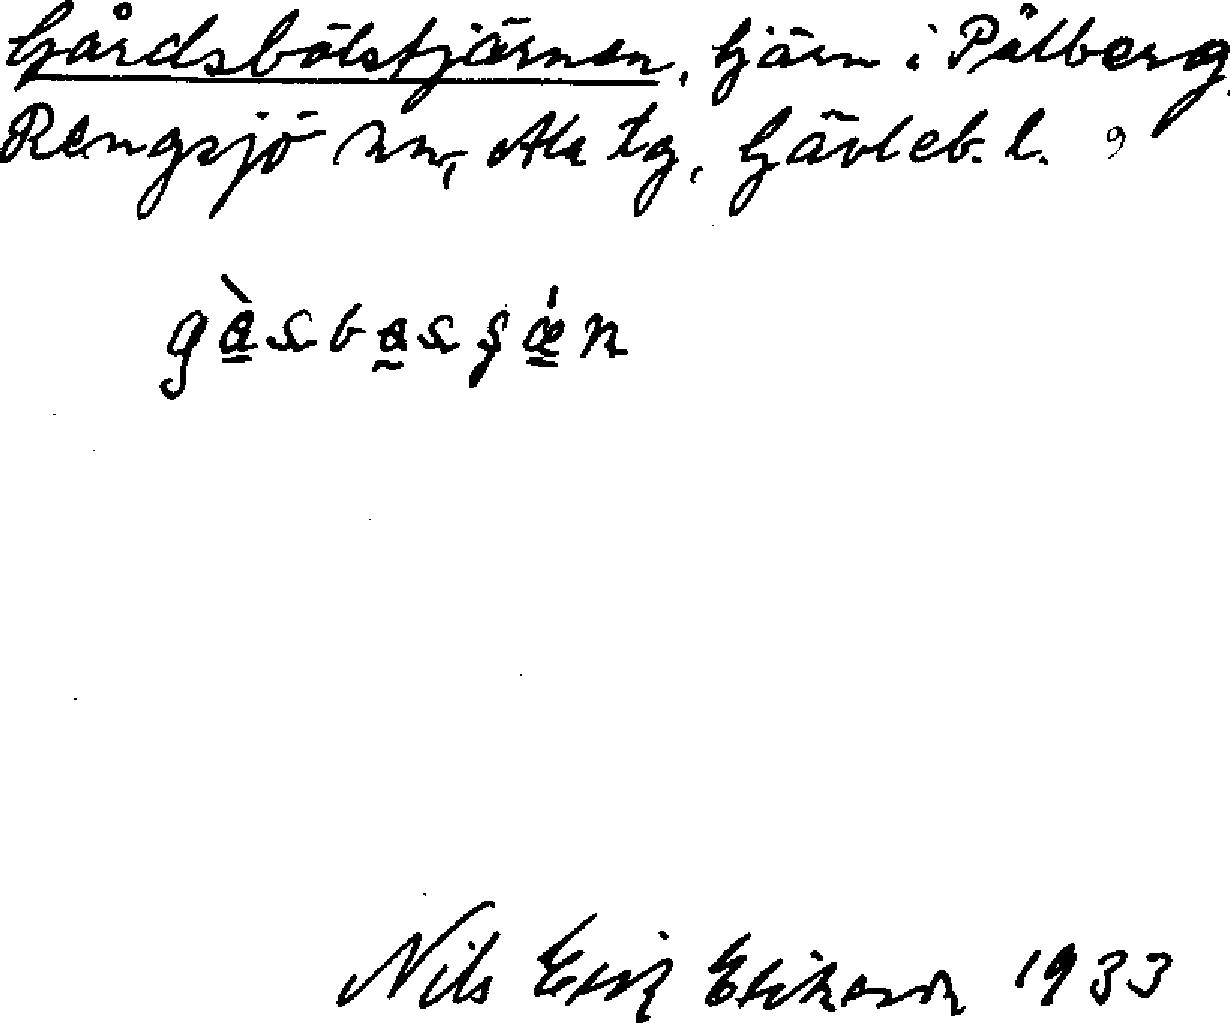 Gårdsbölstjärnen, tjärn i Pålberg,
Rengsjö sn, Ala tg, Gävleb. l.
Nils Erik Erikson 1933